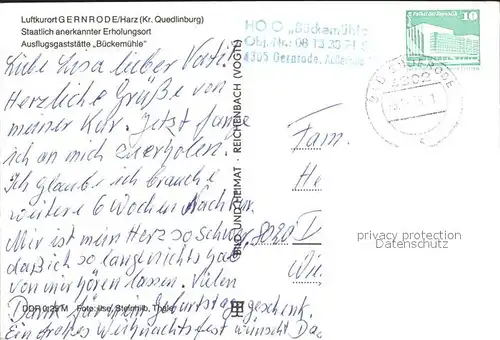 Luftkurort GERNRODE/Harz (Kr. Quedlinburg)
Staatlich anerkannter Erholungsort
Ausflugsgaststätte „Bückemühle“
HO G „Bückemühle
4305 Gernrode,
10
Liebe Lisa lieber
Herzliche Grüße von
meiner Kur. Jetzt fange
ich an mich zu erholen.
Ich glaube ich brauche
weitere 6 Wochen Nachkur.
Mir ist mein Herz so schwer,
daß ich so lang nichts hab
von mir hören lassen. Vielen
Dank für mein Geburtstagsgeschenk.
Ein frohes Weihnachtsfest wünscht
BILD UND HEIMAT · REICHENBACH (VOGTL)
Fam.
He
8020
DDR 0,25 M Foto:
privacy protection
Datenschutz